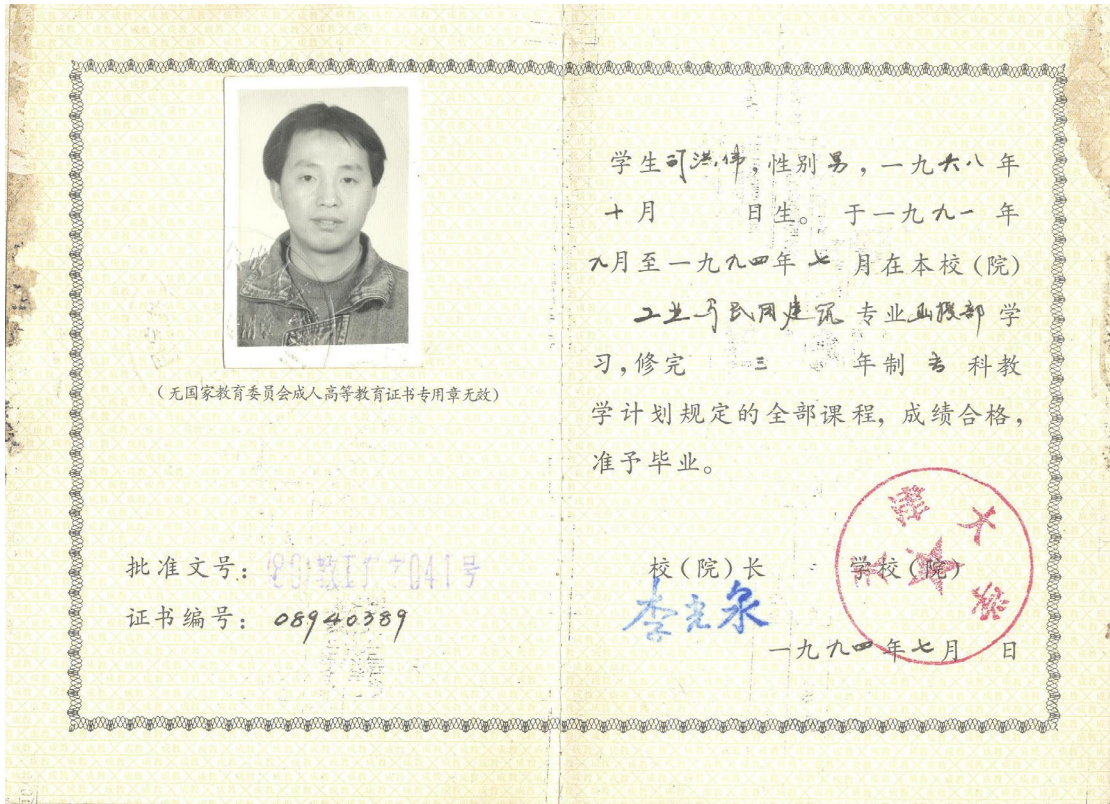 （无国家教育委员会成人高等教育证书专用章无效）
批准文号：教 041号
证书编号：08940389
学生 洪伟，性别男，一九六八年
十月 日生。于一九九一年
九月至一九九四年七月在本校(院)
工业与民用建筑专业函授部学
习，修完三年制专科教
学计划规定的全部课程，成绩合格，
准予毕业。
校(院)长 学校(院)
李光泉
一九九四年七月 日
津大学